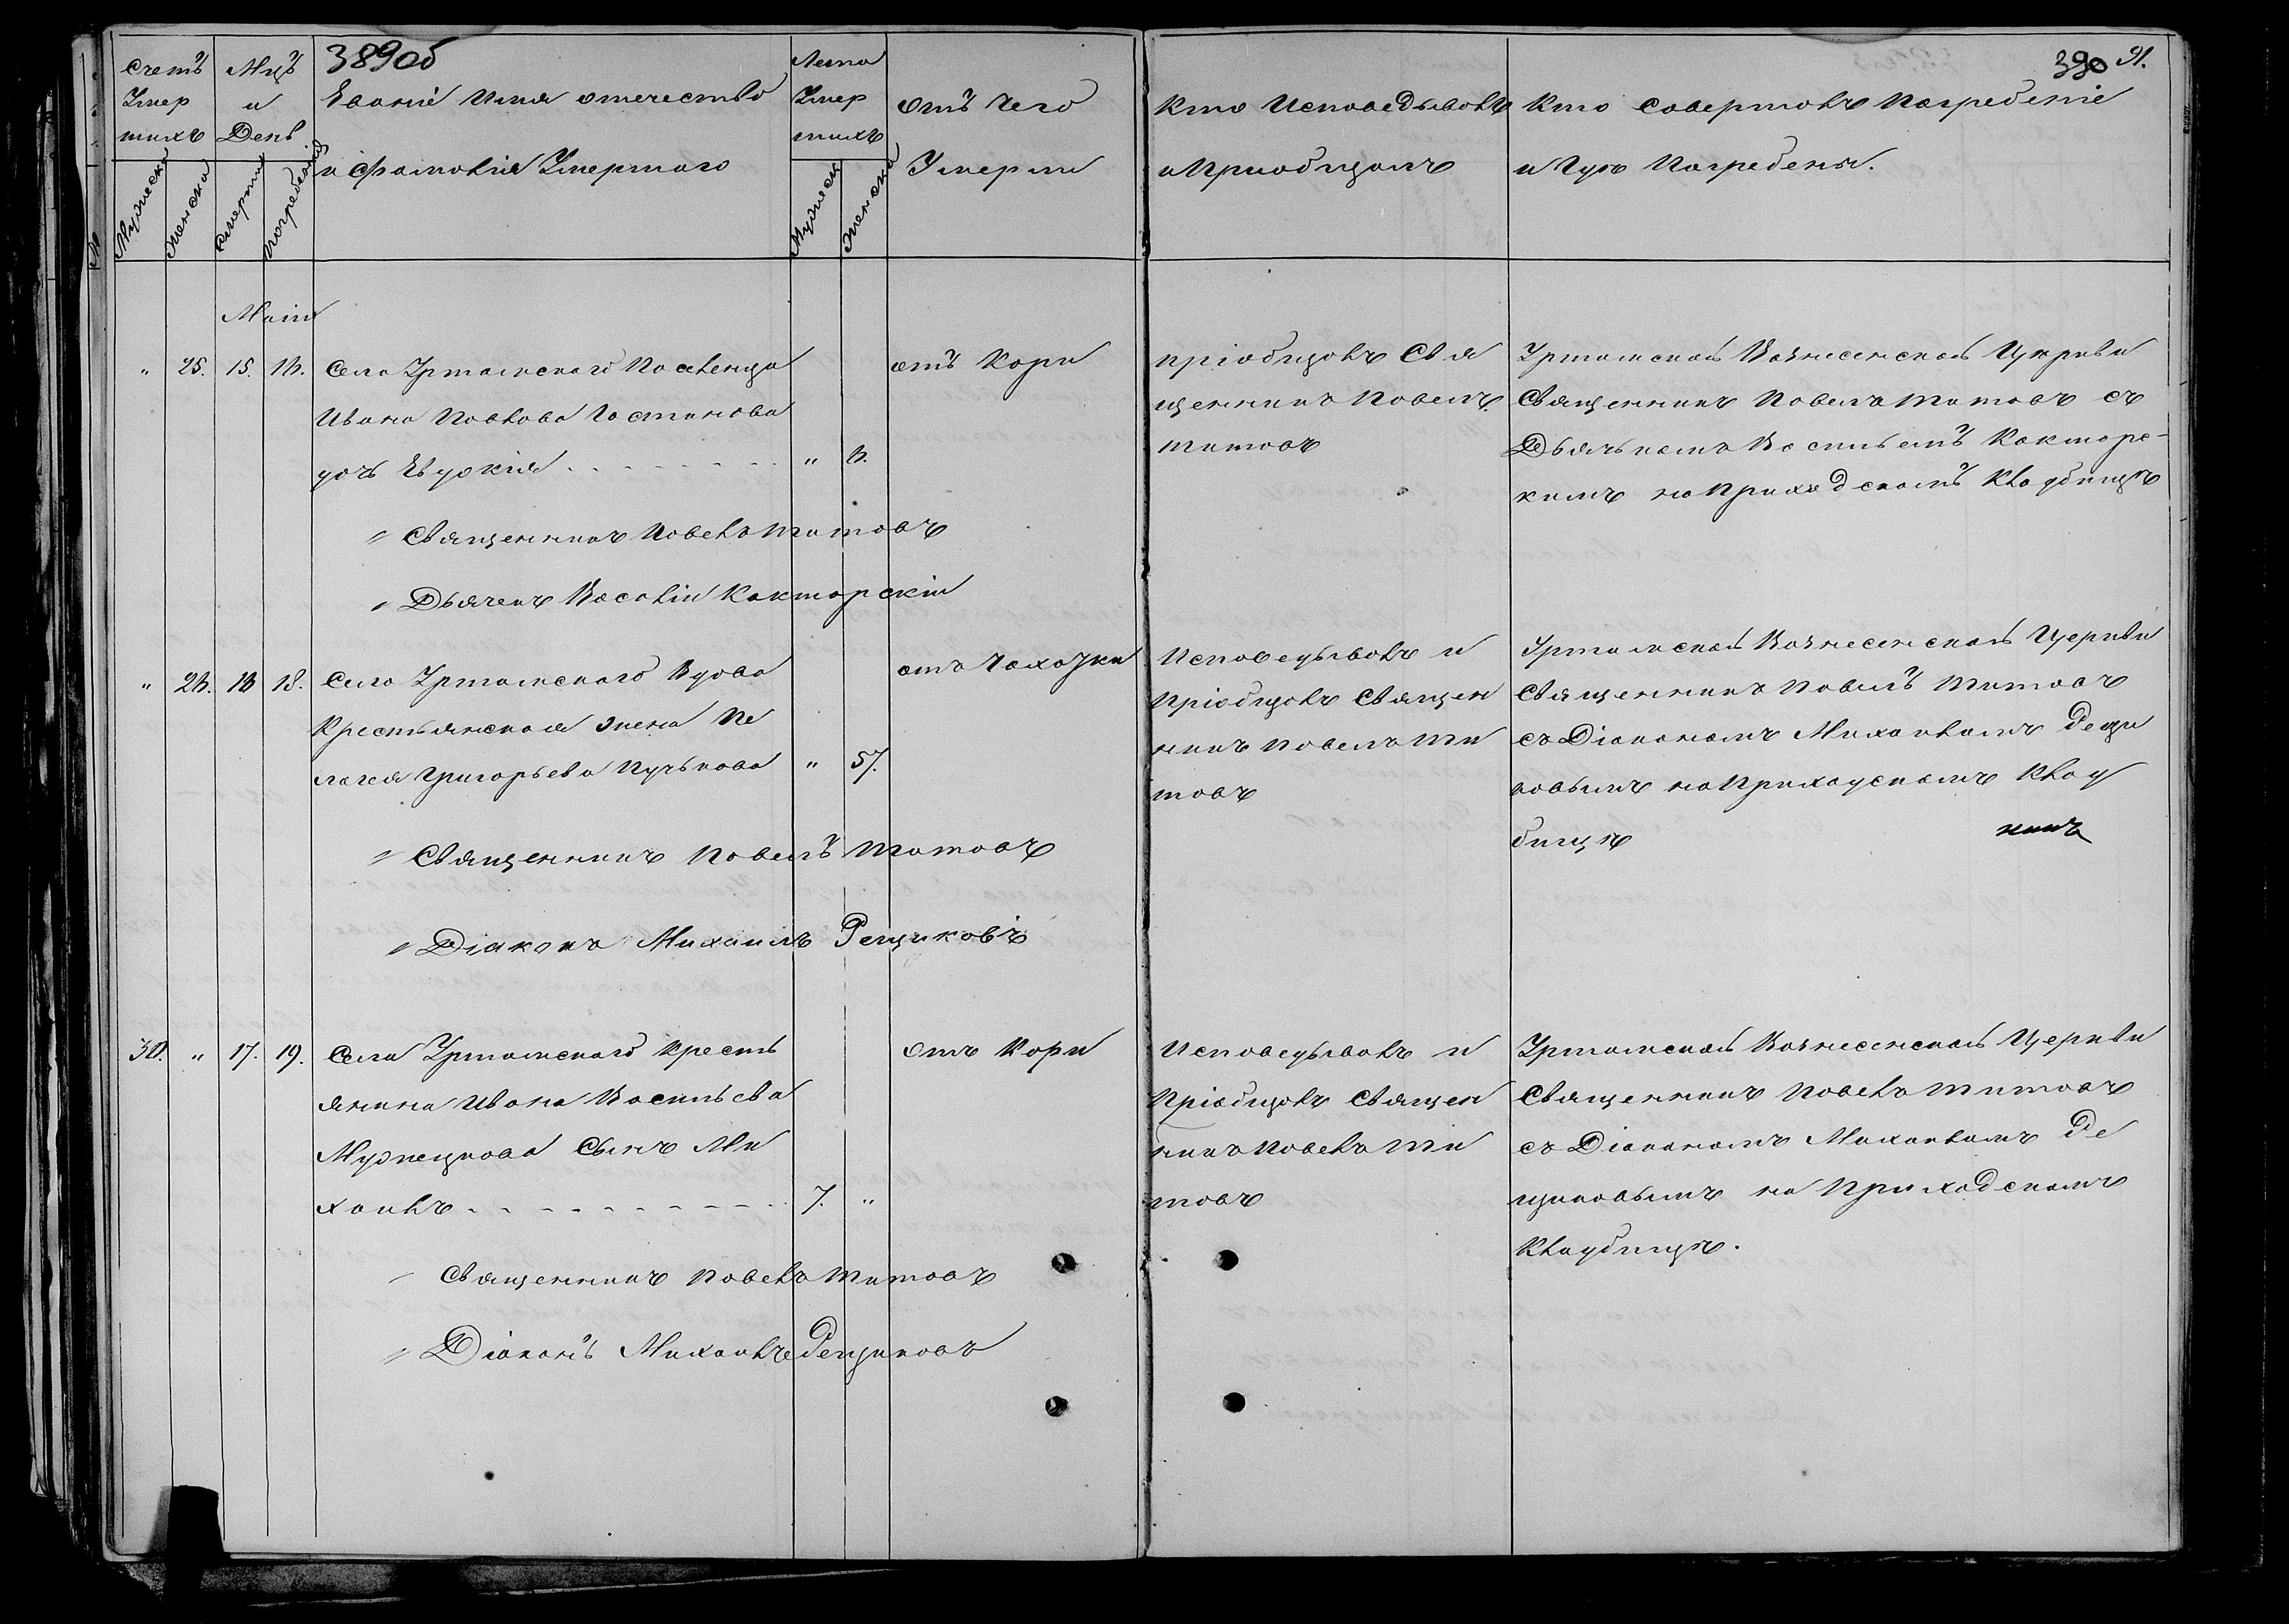 389об
Счетъ
Умер
шихъ
Мужеска
Женска
Мцъ
и
День
смерти
погребенія
Званіе Имя отечество
и Фамилія Умершаго
Лета
Умер
шихъ
Мужеск
Женска
отъ чего
Умерли
Кто Исповедывалъ
и Приобщалъ
390 91.
Кто Совершалъ Погребеніе
и Гдѣ Погребены.
Маія
" 25. 15. 16.
Села Уртамскаго Поселенца
Ивана Павлова Постникова
дочь Евдокія " 6.
отъ Кори
пріобщалъ Свя
щенникъ Павелъ
Титовъ
Уртамской Вознесенской Церкви
Священникъ Павелъ Титовъ съ
Дьячькомъ Васильемъ Какторс-
кимъ на Приходскомъ Кладбищѣ
Священникъ Павелъ Титовъ
Дьячекъ Василій Какторскій
" 26. 16 18.
Села Уртамского Вдова
Крестьянская жена Пе
лагея Григорьева Пучькова " 57.
отъ Чахотки
Исповедывалъ и
Пріобщалъ Священ
никъ Павелъ Ти
товъ
Уртамской Вознесенской Церкви
Священникъ Павелъ Титовъ
съ Діакономъ Михаиломъ Рещи
ковымъ на Приходскомъ Клад
бищѣ
Священникъ Павелъ Титовъ
Діаконъ Михаилъ Рещиковъ
30. " 17. 19.
Села Уртамского Кресть
янина Ивана Васильева
Мурзецкова Сынъ Ми
хаилъ 7. "
отъ Кори
Исповедывалъ и
Пріобщалъ Священ
никъ Павелъ Ти
товъ
Уртамской Вознесенской Церкви
Священникъ Павелъ Титовъ
съ Діакономъ Михаиломъ Ре
щиковымъ на Приходскомъ
Кладбищѣ.
Священникъ Павелъ Титовъ
Діаконъ Михаилъ Рещиковъ